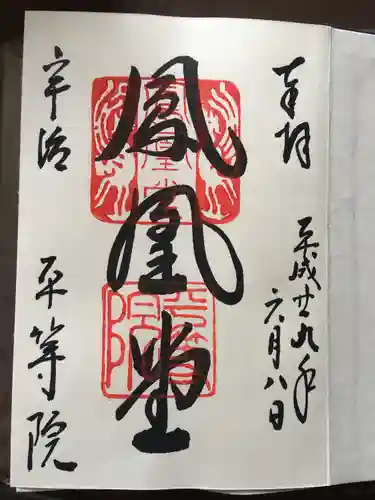 奉拝
平成廿九年
六月八日
鳳凰堂
宇治
平等院